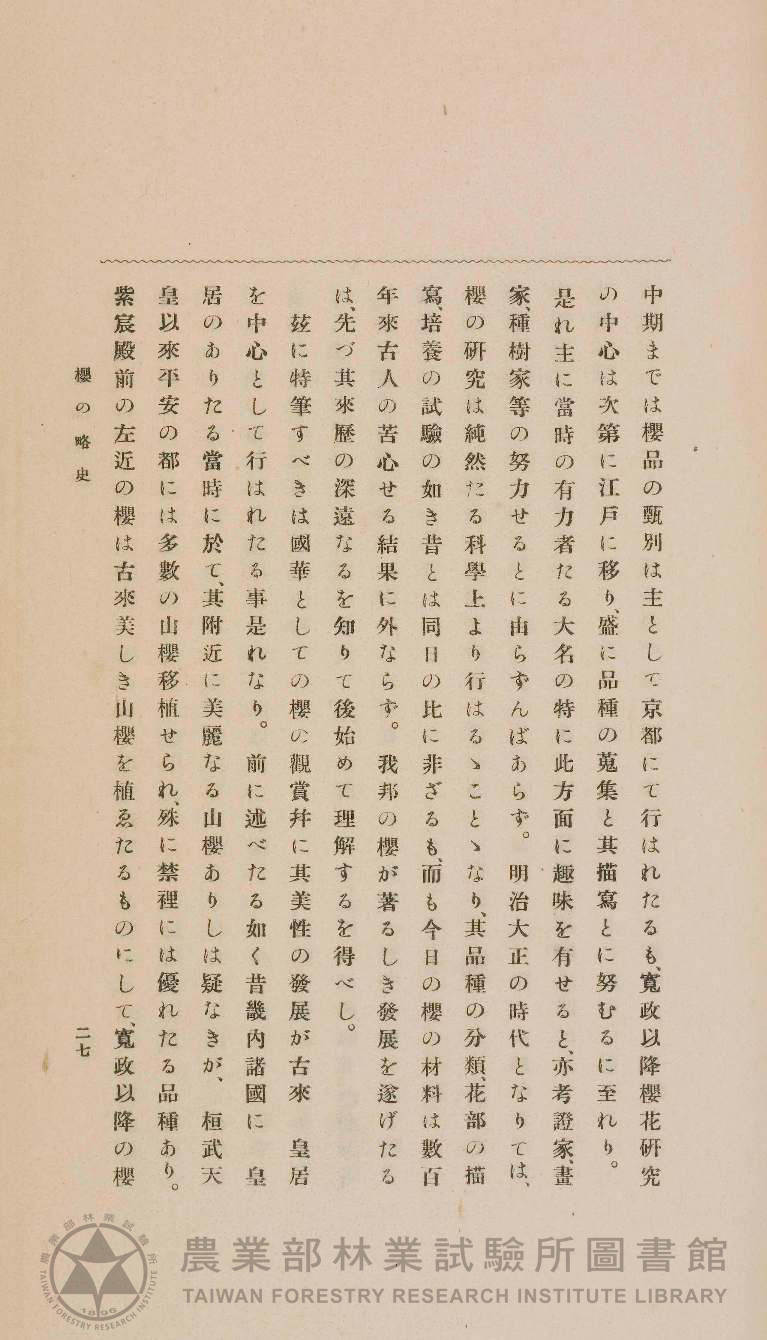 中期までは櫻品の甄別は主として京都にて行はれたるも、寬政以降櫻花硏究
の中心は次第に江戸に移り、盛に品種の蒐集と其描寫とに努むるに至れり。
是れ主に當時の有力者たる大名の特に此方面に趣味を有せると、亦考證家、畫
家、種樹家等の努力せるとに由らずんばあらず。明治大正の時代となりては、
櫻の硏究は純然たる科學上より行はるゝことゝなり、其品種の分類、花部の描
寫、培養の試驗の如き昔とは同日の比に非ざるも、而も今日の櫻の材料は數百
年來古人の苦心せる結果に外ならず。我邦の櫻が著るしき發展を遂げたる
は、先づ其來歷の深遠なるを知りて後始めて理解するを得べし。
玆に特筆すべきは國華としての櫻の觀賞幷に其美性の發展が古來　皇居
を中心として行はれたる事是れなり。前に述べたる如く昔畿內諸國に　皇
居のありたる當時に於て、其附近に美麗なる山櫻ありしは疑なきが、　桓武天
皇以來平安の都には多數の山櫻移植せられ、殊に禁裡には優れたる品種あり。
紫宸殿前の左近の櫻は古來美しき山櫻を植ゑたるものにして、寬政以降の櫻
櫻の略史
二七
農業部林業試驗所圖書館
TAIWAN FORESTRY RESEARCH INSTITUTE LIBRARY
農業部林業試驗所
TAIWAN FORESTRY RESEARCH INSTITUTE
1896